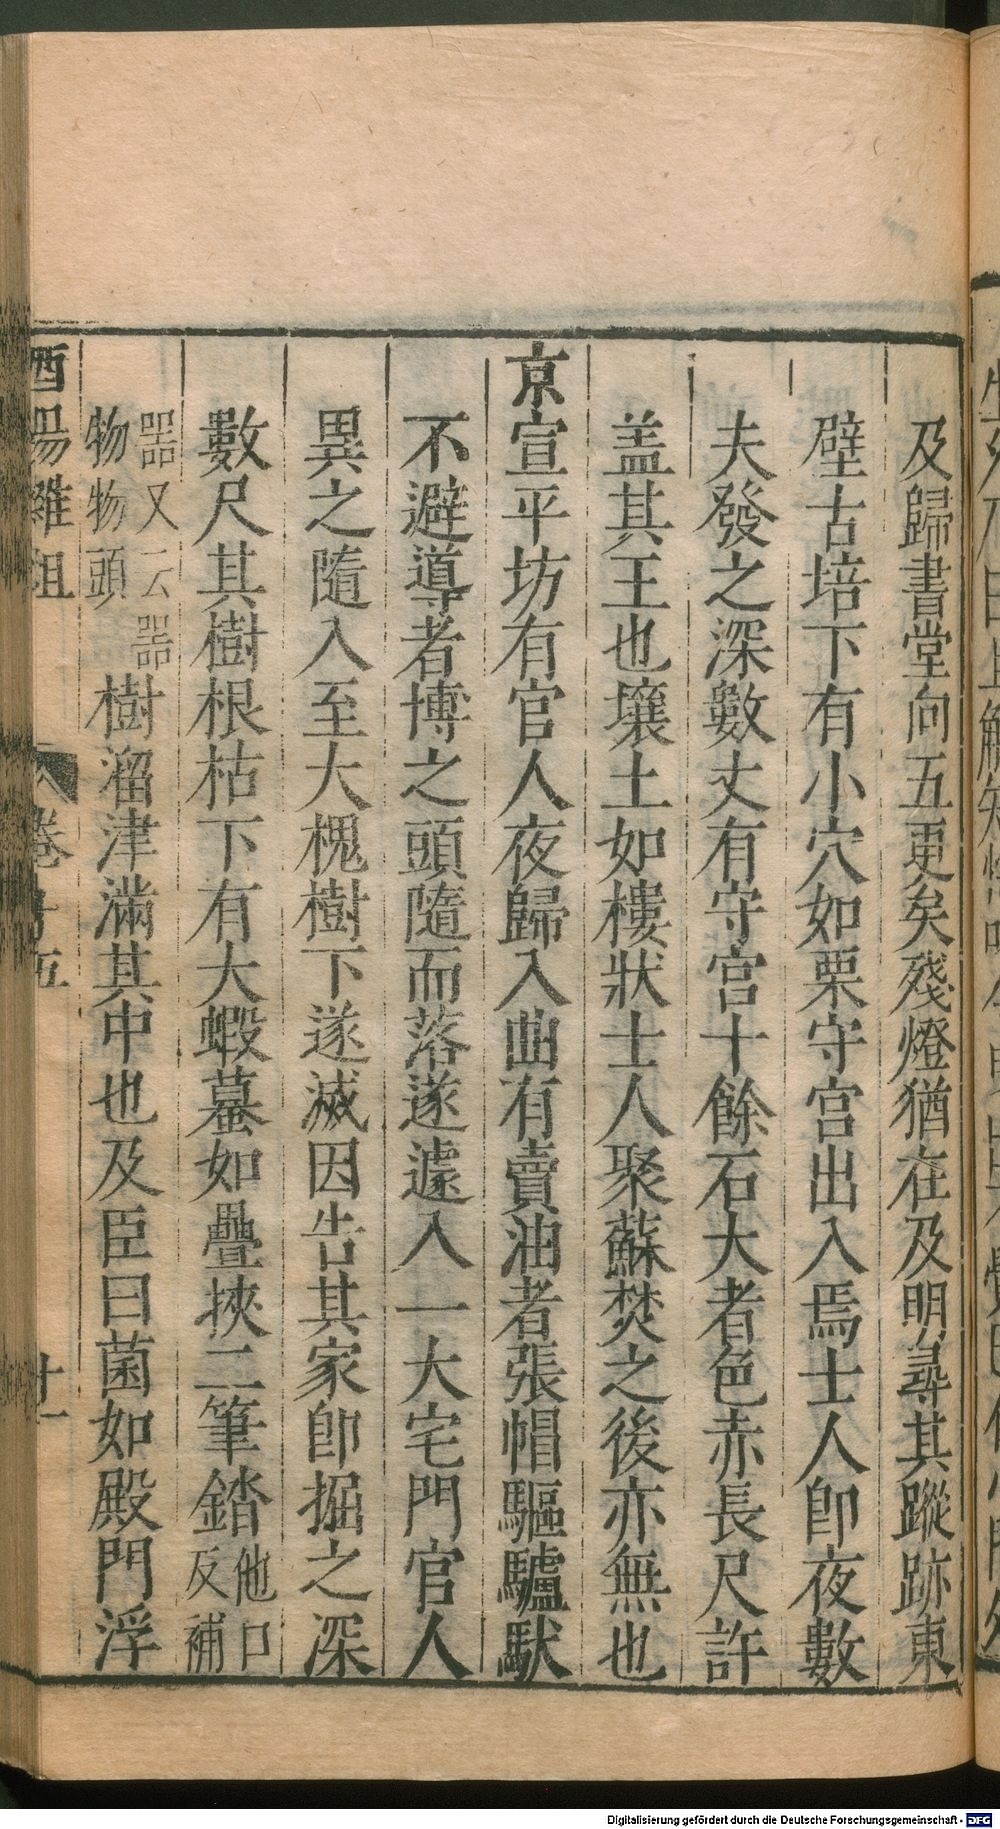 及歸書堂向五更矣殘燈猶在及明尋其蹤跡東
壁古培下有小穴如栗守宫出入焉士人卽夜數
夫發之深數丈有守宫十餘石大者色赤長尺許
盖其王也壤土如樓狀士人聚蘇焚之後亦無也
京宣平坊有官人夜歸入曲有賣油者張帽驅驢馱
不避導者博之頭隨而落遂遽入一大宅門官人
異之隨入至大槐樹下遂滅因告其家卽掘之深
數尺其樹根枯下有大蝦蟇如疊挾二筆錔他口反補
器又云器物物頭樹溜津滿其中也及臣曰菌如殿門浮
酉陽雜俎 卷十五 十一
Digitalisierung gefördert durch die Deutsche Forschungsgemeinschaft - DFG